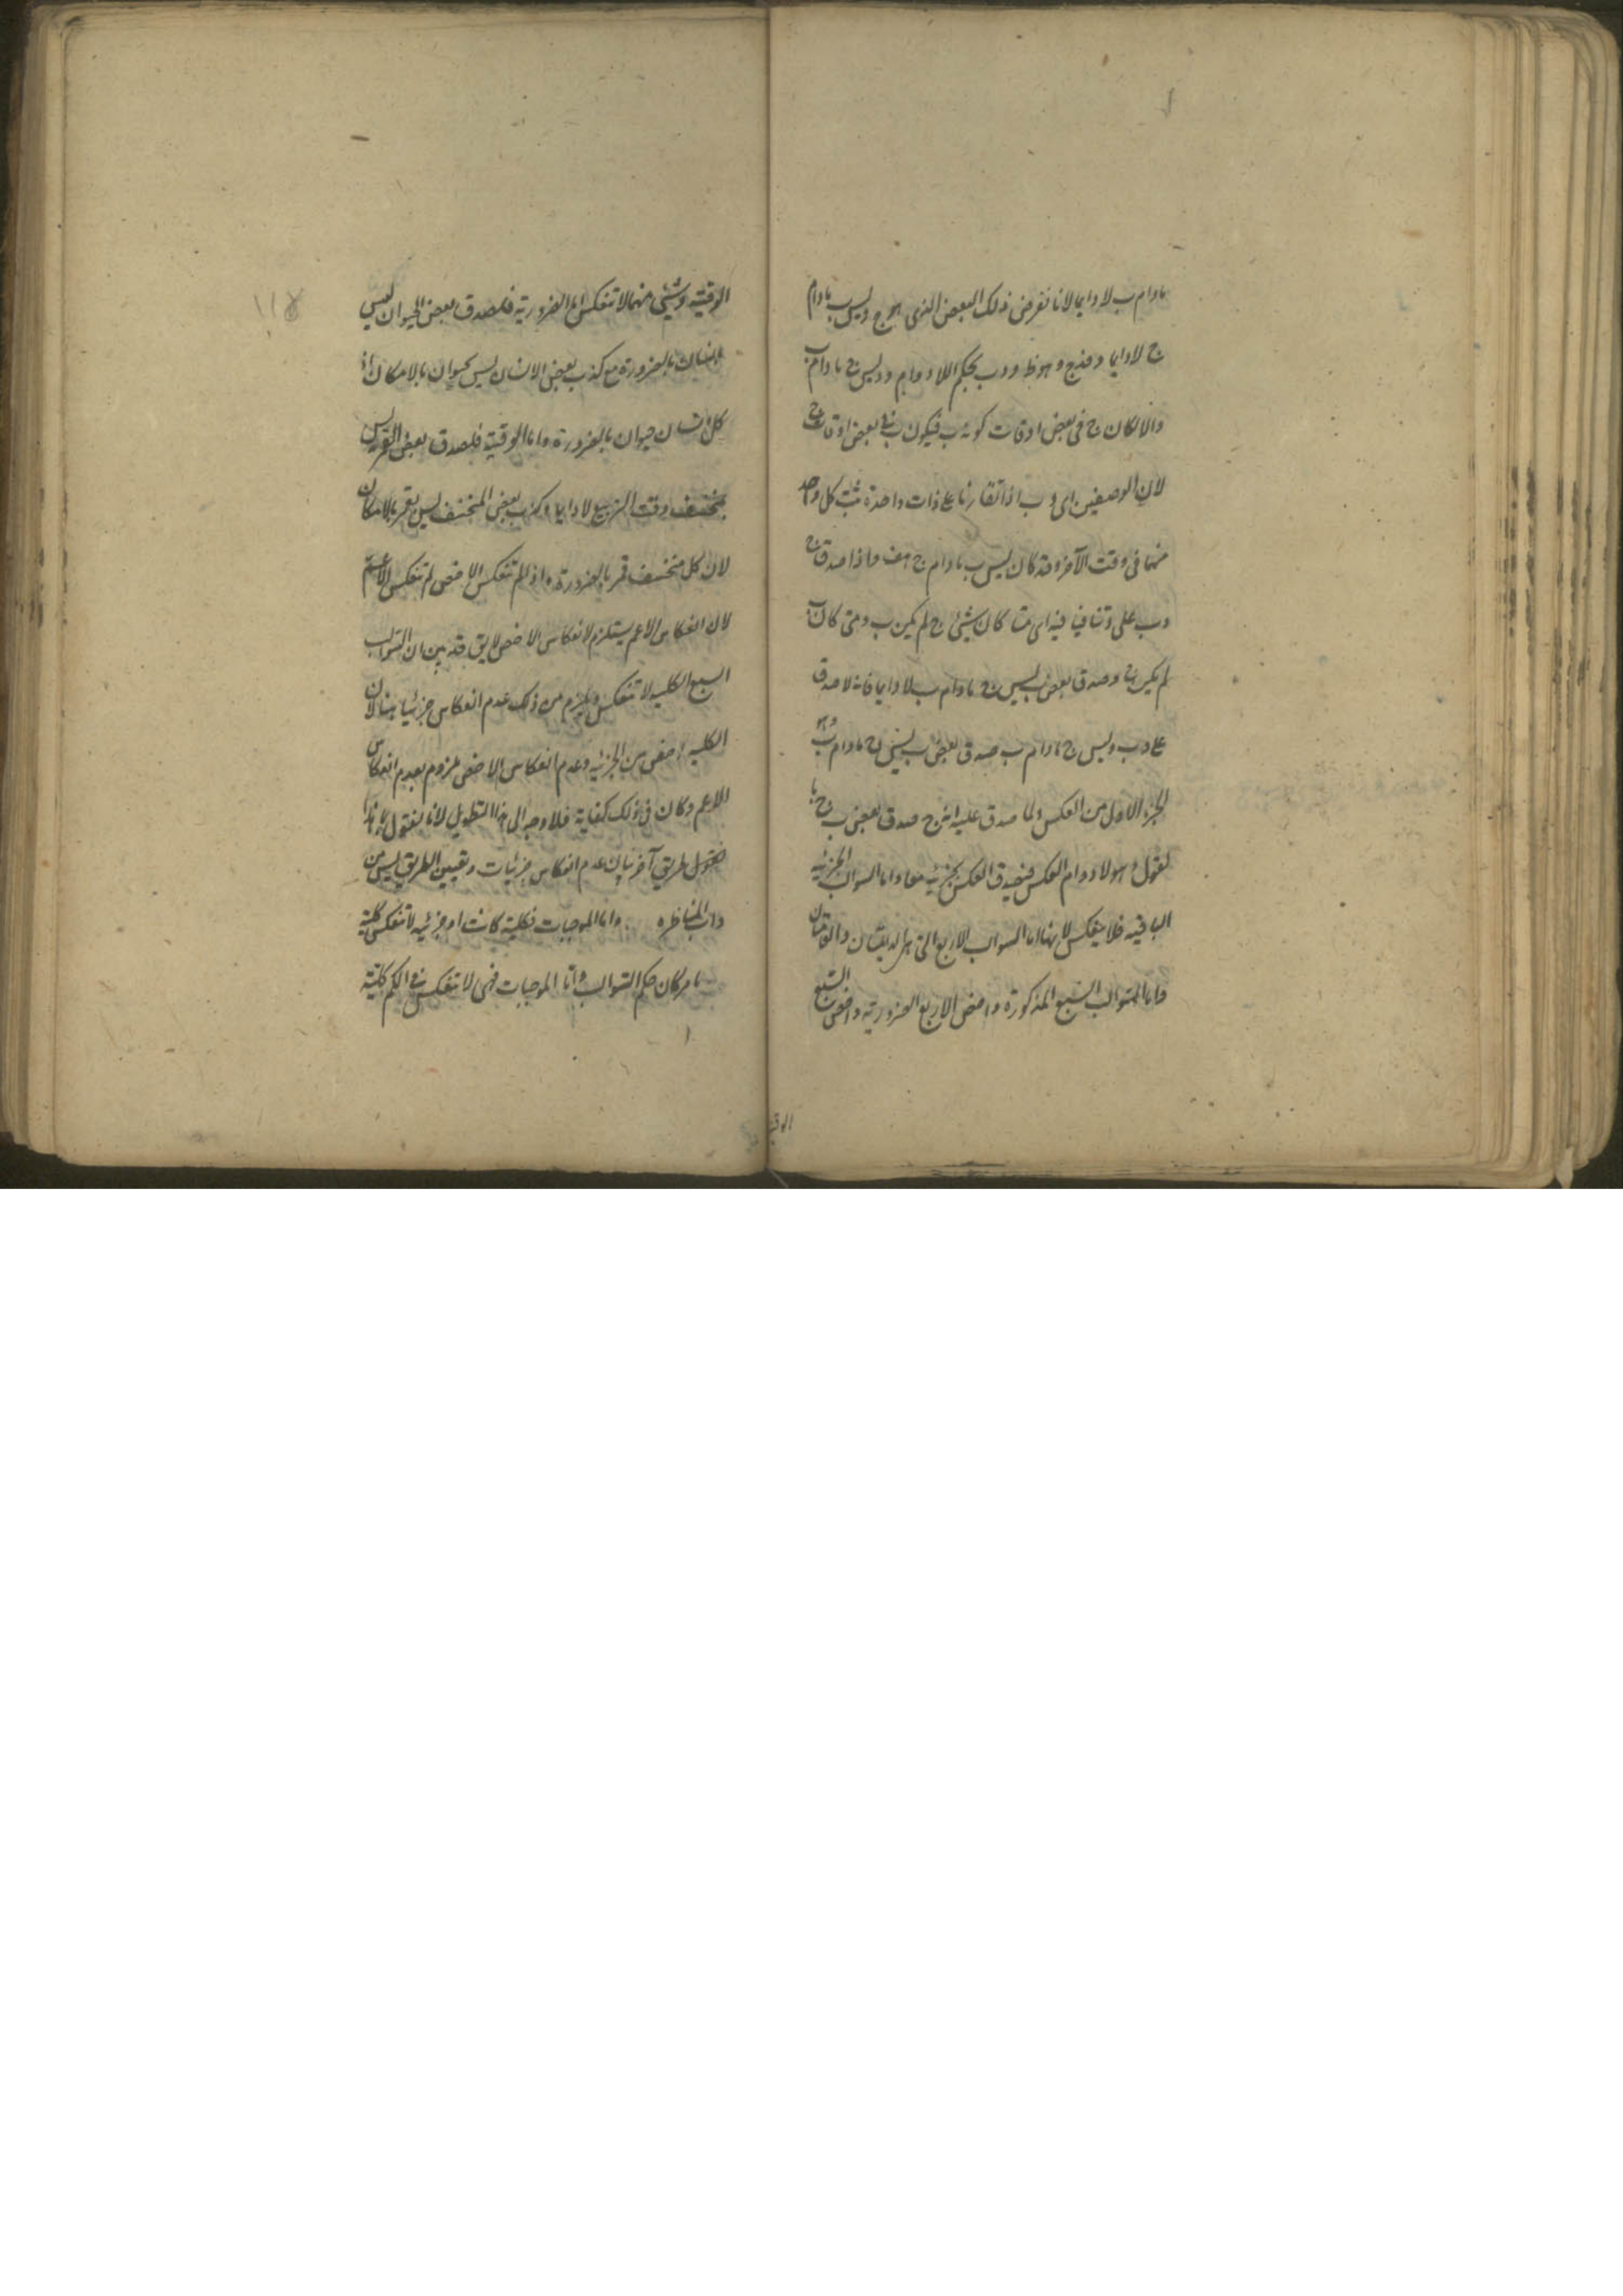 مادام ب لا دايما لانا نفرض ذلك البعض الذى هو ج وليس ب مادام
ج لا دايما د فدج وهو ظ ودب بحكم اللادوام ودليس ج مادام ب
والا لكان ج فى بعض اوقات كونه ب فيكون ب فى بعض اوقات ج
لان الوصفين اى ج و ب اذا تقارنا على ذات واحدة ثبت كل واحد
منهما فى وقت الآخر وقد كان ليس ب مادام ج هف واذا صدق ج
وب على د وتنافيا فيه اى متى كان شيئ ج لم يكن ب ومتى كان ب
لم يكن ج وصدق بعض ب ليس ج مادام ب لا دايما فانه لما صدق
على د ب وليس ج مادام ب صدق بعض ب ليس ج مادام ب وهو
الجزء الاول من العكس ولما صدق عليه انه ج صدق بعض ب ج با
لفعل وهو لا دوام العكس فيصدق العكس بجزئيه معا واما السوالب الجزئية
الباقية فلا ينعكس لانها اما السوالب الاربع التى هى الدايمتان والعامتان
واما السوالب السبع المذكورة واخص الاربع الضرورية واخص السبع
الوقتية
الوقتية وشيئ منهما لا تنعكس اما الضرورية فلصدق بعض الحيوان ليس
بانسان بالضرورة مع كذب بعض الانسان ليس بحيوان بالامكان اذ
كل انسان حيوان بالضرورة واما الوقتية فلصدق بعض القمر ليس
بمنخسف وقت التربيع لا دايما وكذب بعض المنخسف ليس بقمر بالامكان
لان كل منخسف قمر بالضرورة واذا لم تنعكس الاخص لم تنعكس الاعم
لان انعكاس الاعم يستلزم لانعكاس الاخص لا يق قد بين ان السوالب
السبع الكلية لا تنعكس ويلزم من ذلك عدم انعكاس جزئياتها لان
الكلية اخص من الجزئية وعدم انعكاس الاخص ملزوم لعدم انعكاس
الاعم وكان فى ذلك كفاية فلا وجه الى هذا التطويل لانا نقول
طريق آخر لبيان عدم انعكاس جزئيات وتعيين الطريق ليس من
داب المناظره واما الموجبات فكلية كانت او جزئية لا تنعكس كلية
ما مر كان حكم السوالب واما الموجبات فهى لا تنعكس فى الكم كلية
١١٥